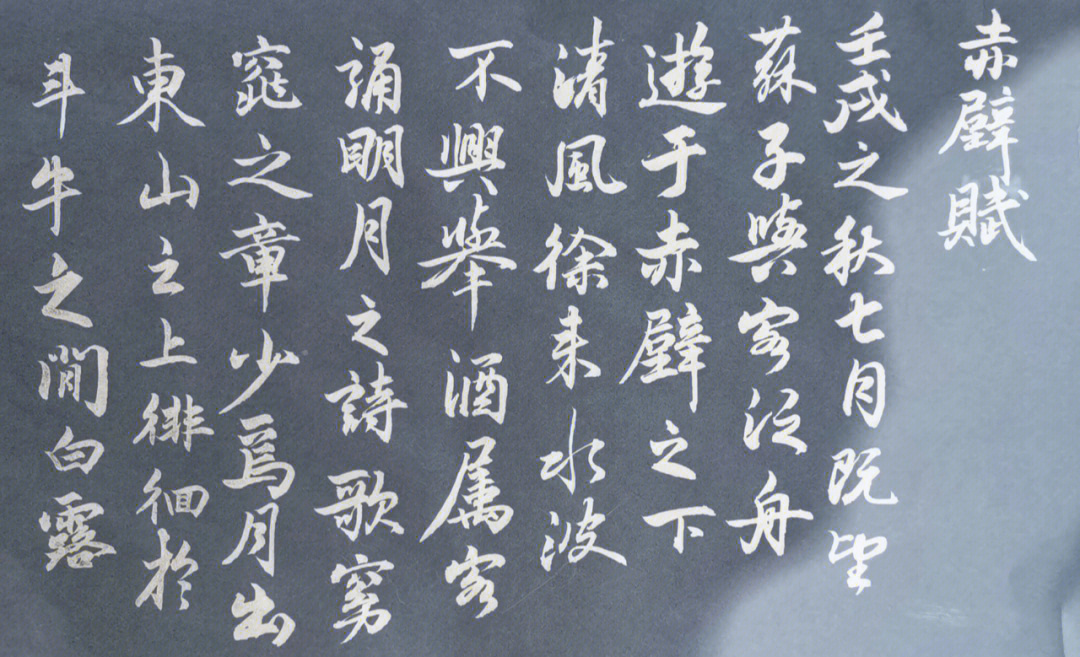 赤壁賦
壬戌之秋七月既望
蘇子與客泛舟
遊于赤壁之下
清風徐来水波
不興舉酒属客
誦明月之詩歌窈
窕之章少焉月出
東山之上徘徊於
斗牛之間白露